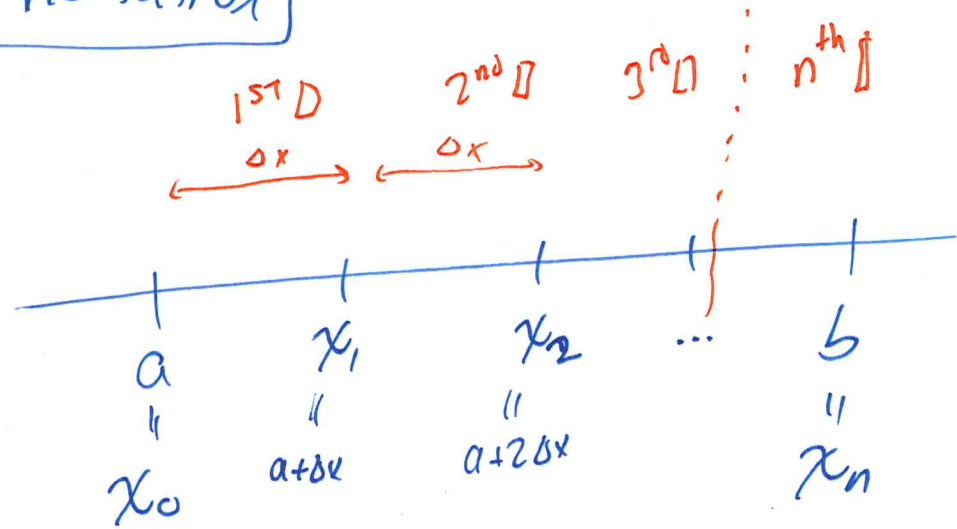 1ST 2nd 3rd nth
Δx Δx
a x₁ x₂ ... b
" " " "
x₀ a+Δx a+2Δx xₙ